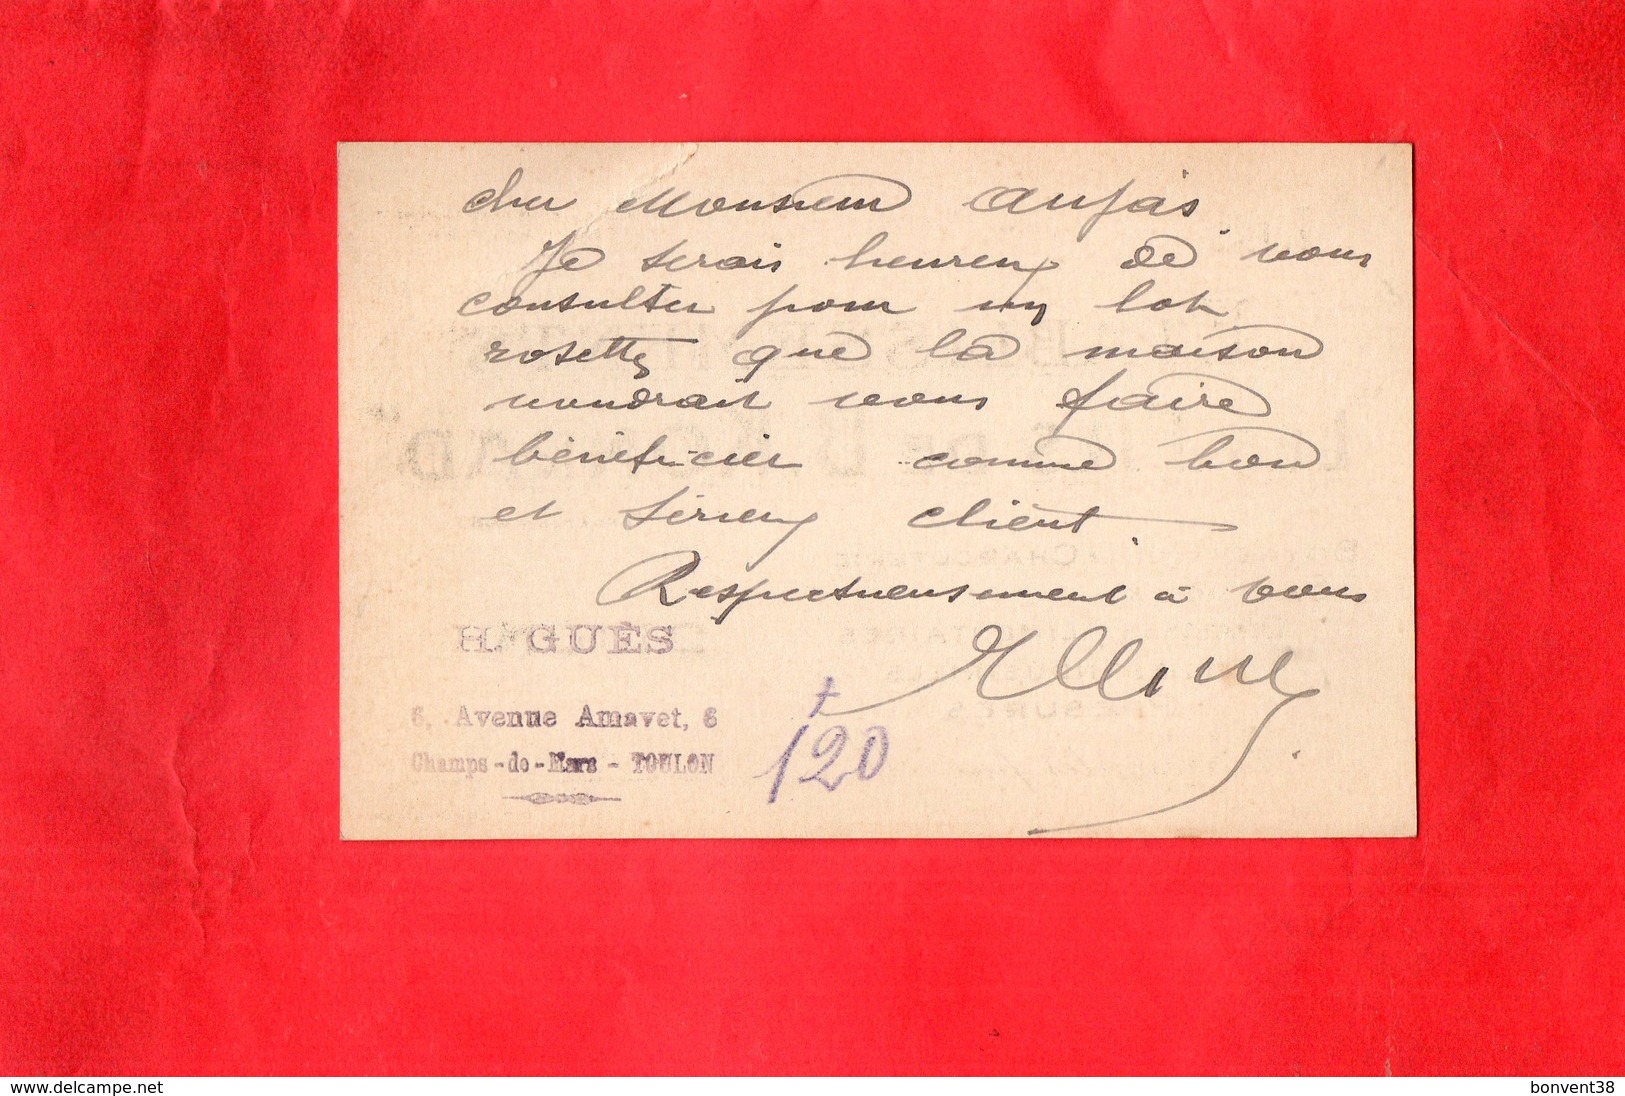 cher Monsieur Aufais
Je serais heureux de vous
consulter pour un lot
rosette que la maison
voudrait vous faire
bénéficier comme bon
et sérieux client.
Respectueusement à vous
H. GUÈS
6, Avenue Amavet, 6
Champs-de-Mars - TOULON
120
www.delcampe.net
bonvent38